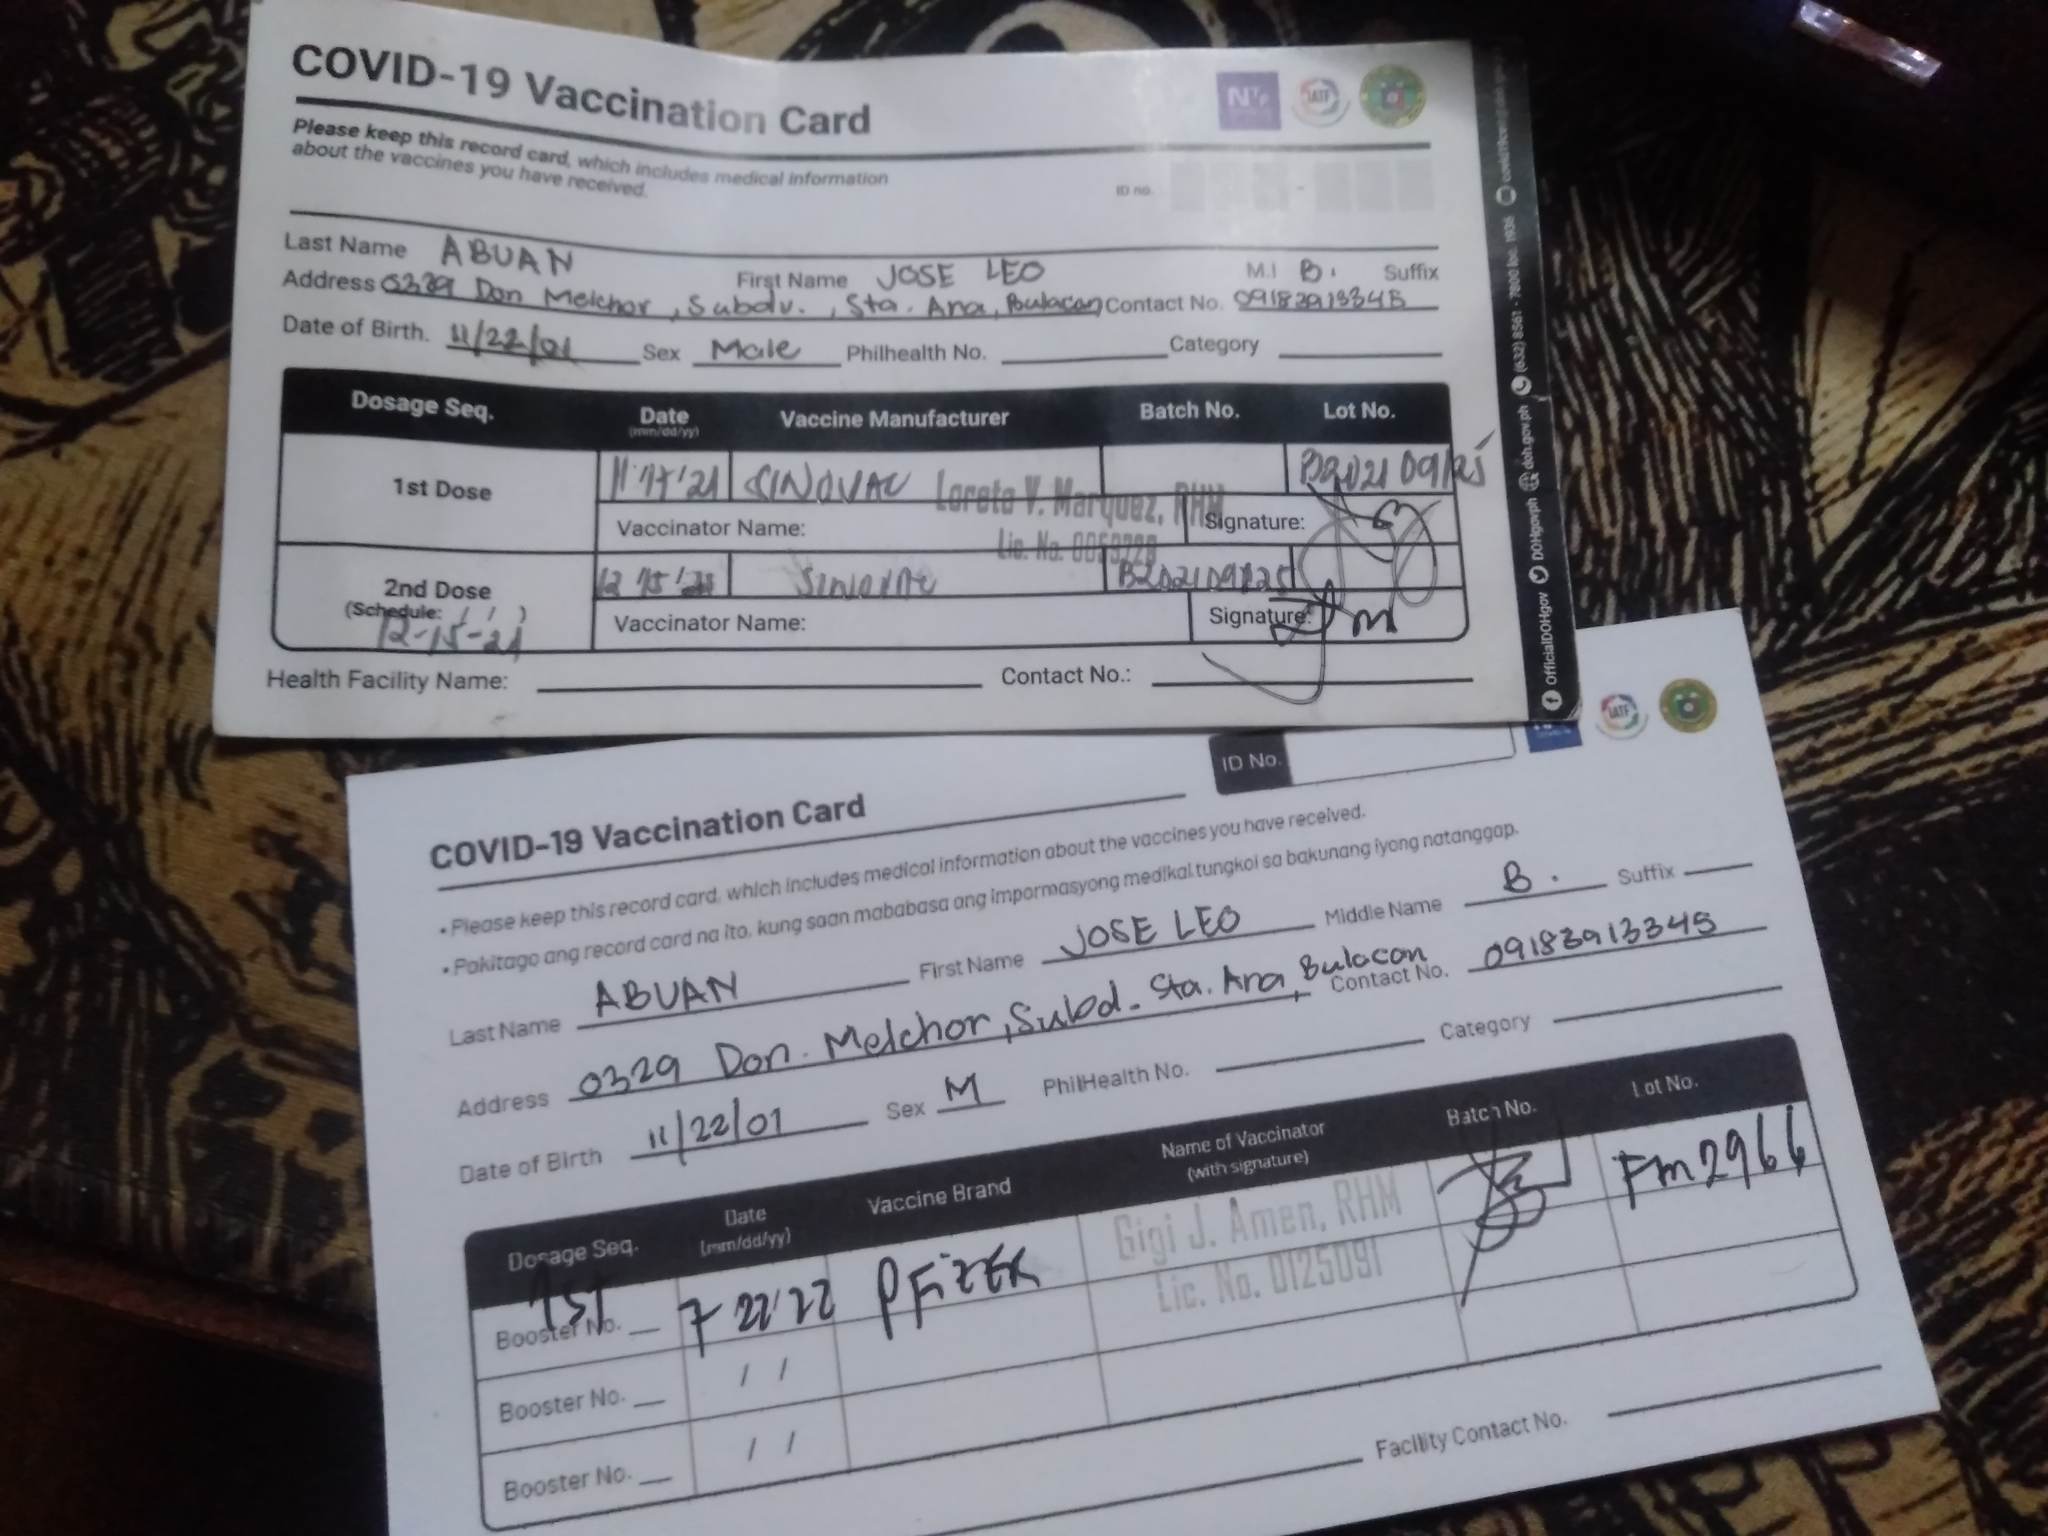 COVID-19 Vaccination Card
Please keep this record card, which includes medical information
about the vaccines you have received.
ID no.
Last Name ABUAN First Name JOSE LEO M.I B. Suffix
Address 0329 Don Melchor, Subdv., Sta. Ana, Bulacan Contact No. 09183913345
Date of Birth. 11/22/01 Sex Male Philhealth No. Category
Dosage Seq. Date (mm/dd/yy) Vaccine Manufacturer Batch No. Lot No.
1st Dose 11'17'21 SINOVAC
Loreto V. Marquez, RHM
Vaccinator Name: Signature:
Lic. No.
2nd Dose 12'15'21 SINOVAC B202109125
(Schedule: / / )
12-15-21
Vaccinator Name: Signature:
Health Facility Name: Contact No.:
OfficialDOHgov DOHgovph doh.gov.ph (632) 8561-7800 loc. 1936
NTF
IATF
IATF
ID No.
COVID-19 Vaccination Card
• Please keep this record card, which includes medical information about the vaccines you have received.
• Pakitago ang record card na ito, kung saan mababasa ang impormasyong medikal tungkol sa bakunang iyong natanggap.
Last Name ABUAN First Name JOSE LEO Middle Name B. Suffix
Address 0329 Don. Melchor, Subd. Sta. Ana, Bulacan Contact No. 09183913345
Date of Birth 11/22/01 Sex M PhilHealth No. Category
Dosage Seq. Date (mm/dd/yy) Vaccine Brand Name of Vaccinator (with signature) Batch No. Lot No.
1st
Booster No. __ 7 22'22 PFIZER Gigi J. Amen, RHM FM2966
Lic. No. 0125091
Booster No. __ / /
Booster No. __ / /
Facility Contact No.